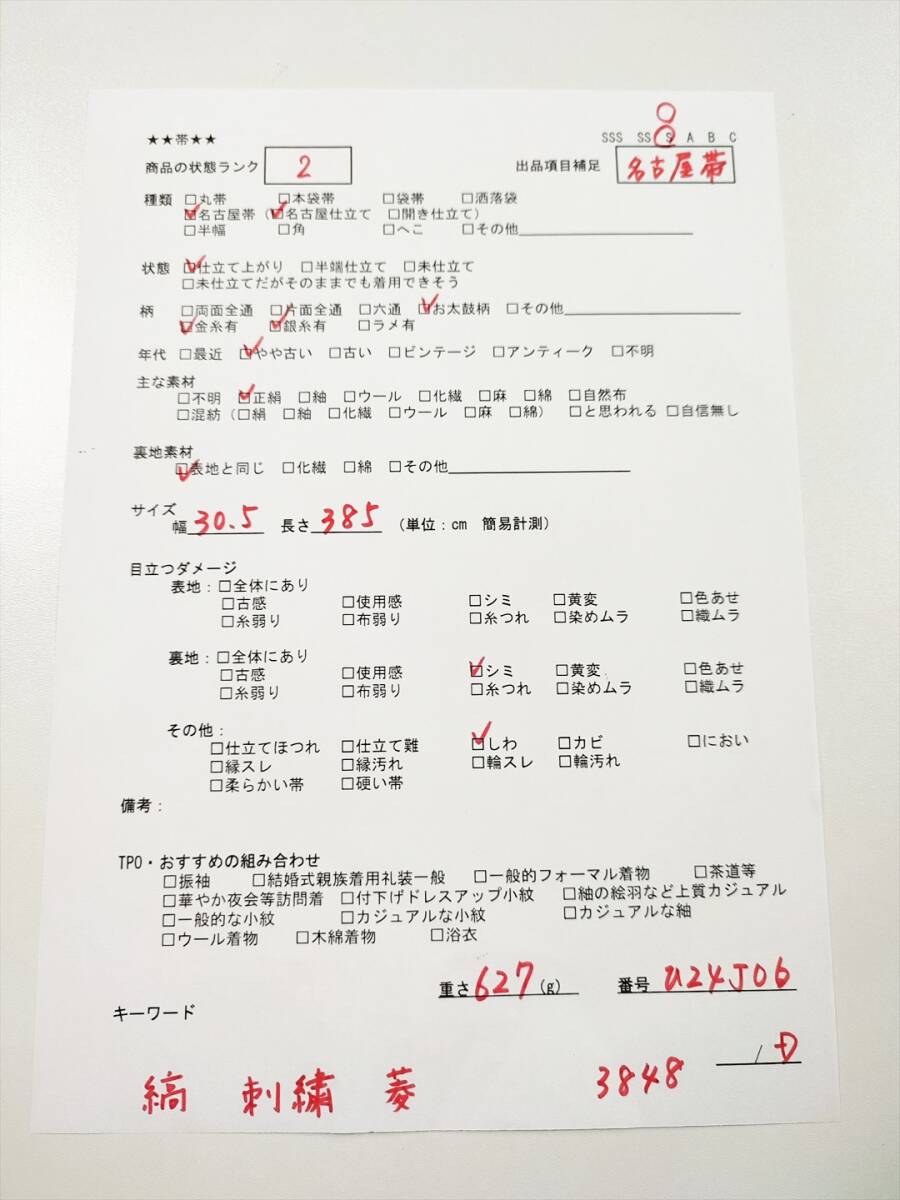 ★★帯★★
SSS SS S A B C
商品の状態ランク 2 出品項目補足 名古屋帯
種類 □丸帯 □本袋帯 □袋帯 □洒落袋
☑名古屋帯(☑名古屋仕立て □開き仕立て)
□半幅 □角 □へこ □その他
状態 ☑仕立て上がり □半端仕立て □未仕立て
□未仕立てだがそのままでも着用できそう
柄 □両面全通 □片面全通 □六通 ☑お太鼓柄 □その他
☑金糸有 ☑銀糸有 □ラメ有
年代 □最近 ☑やや古い □古い □ビンテージ □アンティーク □不明
主な素材
□不明 ☑正絹 □紬 □ウール □化繊 □麻 □綿 □自然布
□混紡(□絹 □紬 □化繊 □ウール □麻 □綿) □と思われる □自信無し
裏地素材
☑表地と同じ □化繊 □綿 □その他
サイズ
幅 30.5 長さ 385 (単位:cm 簡易計測)
目立つダメージ
表地:□全体にあり
□古感 □使用感 □シミ □黄変 □色あせ
□糸弱り □布弱り □糸つれ □染めムラ □織ムラ
裏地:□全体にあり
□古感 □使用感 ☑シミ □黄変 □色あせ
□糸弱り □布弱り □糸つれ □染めムラ □織ムラ
その他:
□仕立てほつれ □仕立て難 ☑しわ □カビ □におい
□縁スレ □縁汚れ □輪スレ □輪汚れ
□柔らかい帯 □硬い帯
備考:
TPO・おすすめの組み合わせ
□振袖 □結婚式親族着用礼装一般 □一般的フォーマル着物 □茶道等
□華やか夜会等訪問着 □付下げドレスアップ小紋 □紬の絵羽など上質カジュアル
□一般的な小紋 □カジュアルな小紋 □カジュアルな紬
□ウール着物 □木綿着物 □浴衣
重さ 627 (g) 番号 U24J06
キーワード
縞 刺繍 菱 3848 /